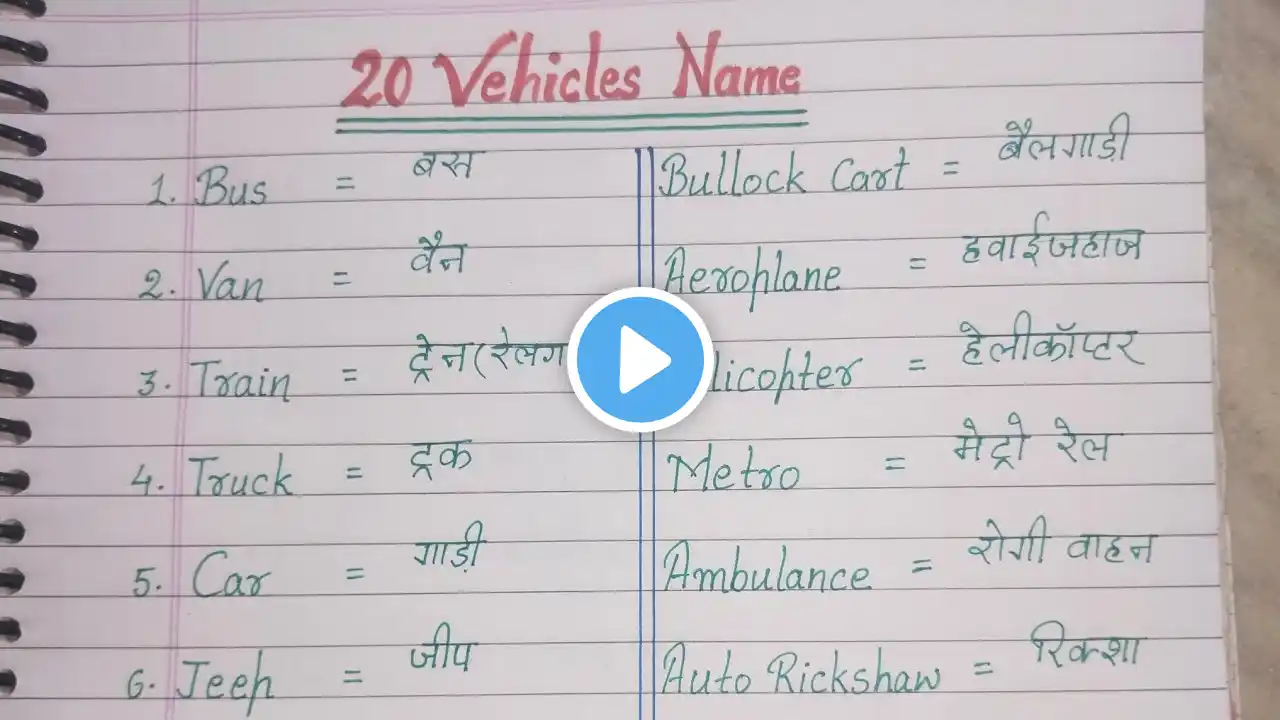 20 Vehicles Name
1. Bus = बस
2. Van = वैन
3. Train = ट्रेन(रेलग
4. Truck = ट्रक
5. Car = गाड़ी
6. Jeep = जीप
Bullock Cart = बैलगाड़ी
Aeroplane = हवाईजहाज
licopter = हेलीकॉप्टर
Metro = मेट्रो रेल
Ambulance = रोगी वाहन
Auto Rickshaw = रिक्शा